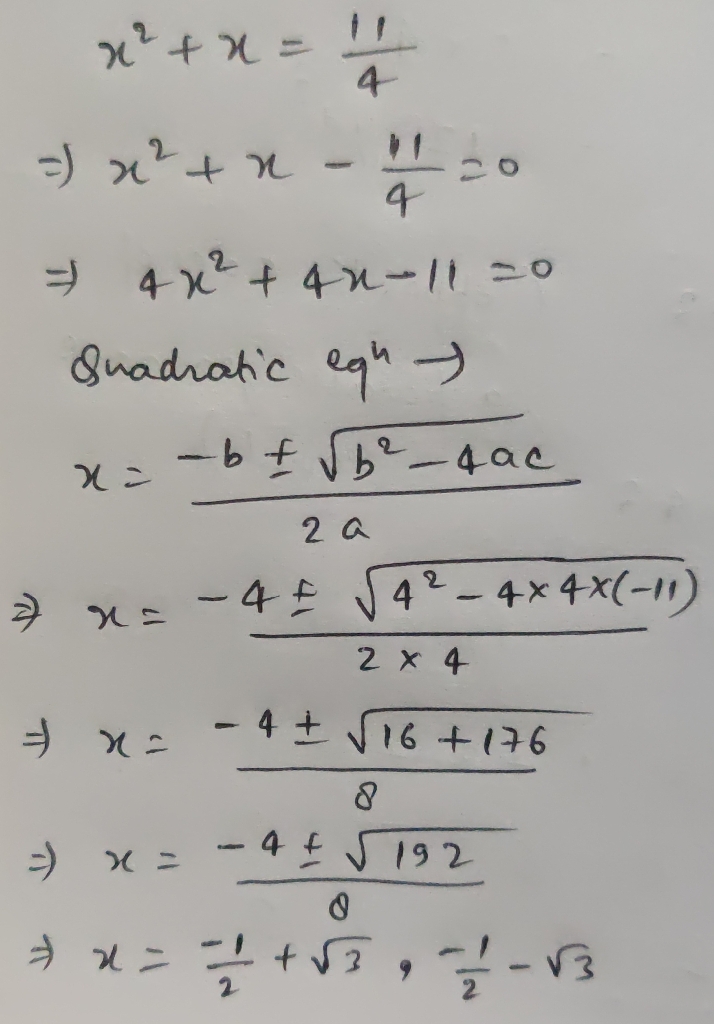 x² + x = 11/4
⇒ x² + x - 11/4 = 0
⇒ 4x² + 4x - 11 = 0
Quadratic eqn →
x = (-b ± √(b² - 4ac))/(2a)
⇒ x = (-4 ± √(4² - 4×4×(-11)))/(2 × 4)
⇒ x = (-4 ± √(16 + 176))/8
⇒ x = (-4 ± √192)/8
⇒ x = -1/2 + √3, -1/2 - √3